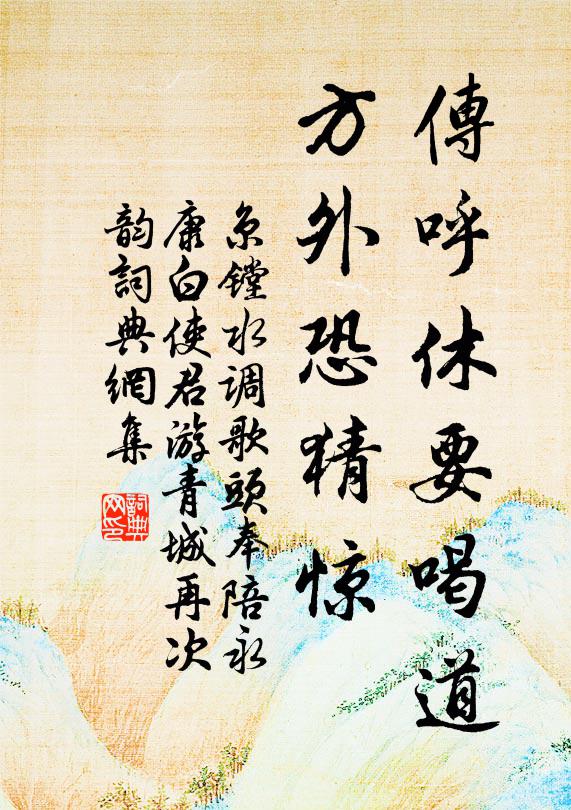 傳呼休要喝道
方外恐猜惊
京鏜水调歌頭奉陪永
康白使君游青城再次
韵詞典網集
詞典
网印